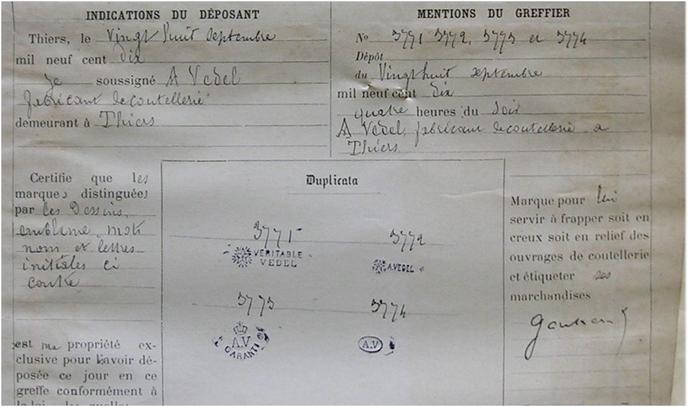 INDICATIONS DU DÉPOSANT
Thiers, le Vingt huit septembre
mil neuf cent dix
je soussigné A Vedel
fabricant de coutellerie
demeurant à Thiers
MENTIONS DU GREFFIER
No 3771 3772, 3773 et 3774
Dépôt
du Vingt huit septembre
mil neuf cent dix
quatre heures du soir
A Vedel, fabricant de coutellerie a
Thiers
Certifie que les
marques distinguées
par les Dessins,
emblème, mot
nom et lettres
initiales ci
contre
est ma propriété ex-
clusive pour l'avoir dé-
posée ce jour en ce
greffe conformément à
la loi,
Duplicata
3771
VÉRITABLE
VEDEL
3772
A.VEDEL
3773
A.V
GARANTI
3774
A.V
Marque pour lui
servir à frapper soit en
creux soit en relief des
ouvrages de coutellerie
et étiqueter ses
marchandises